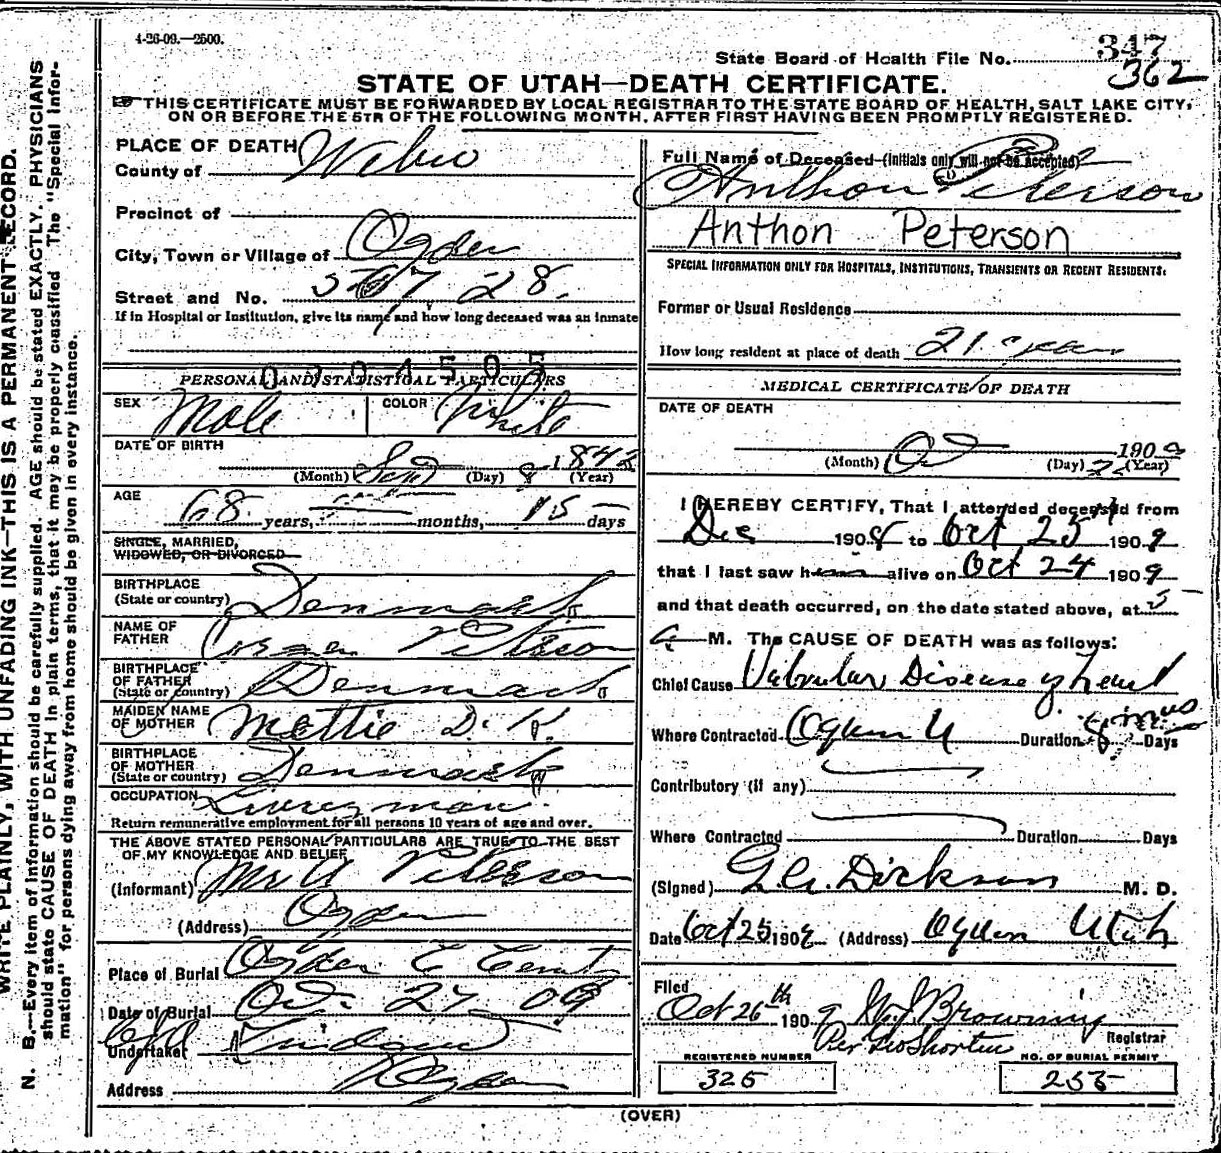 4-26-09.—2500.
State Board of Health File No. 347
362
STATE OF UTAH—DEATH CERTIFICATE.
THIS CERTIFICATE MUST BE FORWARDED BY LOCAL REGISTRAR TO THE STATE BOARD OF HEALTH, SALT LAKE CITY,
ON OR BEFORE THE 5TH OF THE FOLLOWING MONTH, AFTER FIRST HAVING BEEN PROMPTLY REGISTERED.
WRITE PLAINLY, WITH UNFADING INK—THIS IS A PERMANENT RECORD.
N. B.—Every item of information should be carefully supplied. AGE should be stated EXACTLY. PHYSICIANS
should state CAUSE OF DEATH in plain terms, that it may be properly classified. The "Special Infor-
mation" for persons dying away from home should be given in every instance.
PLACE OF DEATH
County of Weber
Precinct of
City, Town or Village of Ogden
Street and No. 28.
If in Hospital or Institution, give its name and how long deceased was an inmate
PERSONAL AND STATISTICAL PARTICULARS
SEX Male COLOR White
DATE OF BIRTH
(Month) (Day) (Year)
AGE
68 years, months, 15 days
SINGLE, MARRIED,
WIDOWED, OR DIVORCED
BIRTHPLACE
(State or country) Denmark
NAME OF
FATHER Peterson
BIRTHPLACE
OF FATHER
(State or country) Denmark
MAIDEN NAME
OF MOTHER Mattie D. K.
BIRTHPLACE
OF MOTHER
(State or country) Denmark
OCCUPATION Liveryman
Return remunerative employment for all persons 10 years of age and over.
THE ABOVE STATED PERSONAL PARTICULARS ARE TRUE TO THE BEST
OF MY KNOWLEDGE AND BELIEF
(Informant) Peterson
(Address) Ogden
Place of Burial Ogden C
Date of Burial Oct. 27 09
Undertaker
Address Ogden
Full Name of Deceased (Initials only will not be accepted)
Anthon Peterson
Anthon Peterson
SPECIAL INFORMATION ONLY FOR HOSPITALS, INSTITUTIONS, TRANSIENTS OR RECENT RESIDENTS:
Former or Usual Residence
How long resident at place of death 21 years
MEDICAL CERTIFICATE OF DEATH
DATE OF DEATH
1909
(Month) Oct (Day) (Year)
I HEREBY CERTIFY, That I attended deceased from
Dec 1908 to Oct 25th 1909
that I last saw h alive on Oct 24 1909
and that death occurred, on the date stated above, at 5
A M. The CAUSE OF DEATH was as follows:
Chief Cause Valvular Disease of heart
Where Contracted Ogden U Duration 8 mos Days
Contributory (if any)
Where Contracted Duration Days
(Signed) Dickson M. D.
Date Oct 25 1909 (Address) Ogden Utah
Filed
Oct 26th 1909 Browning
Registrar
Per
REGISTERED NUMBER
325
NO. OF BURIAL PERMIT
255
(OVER)